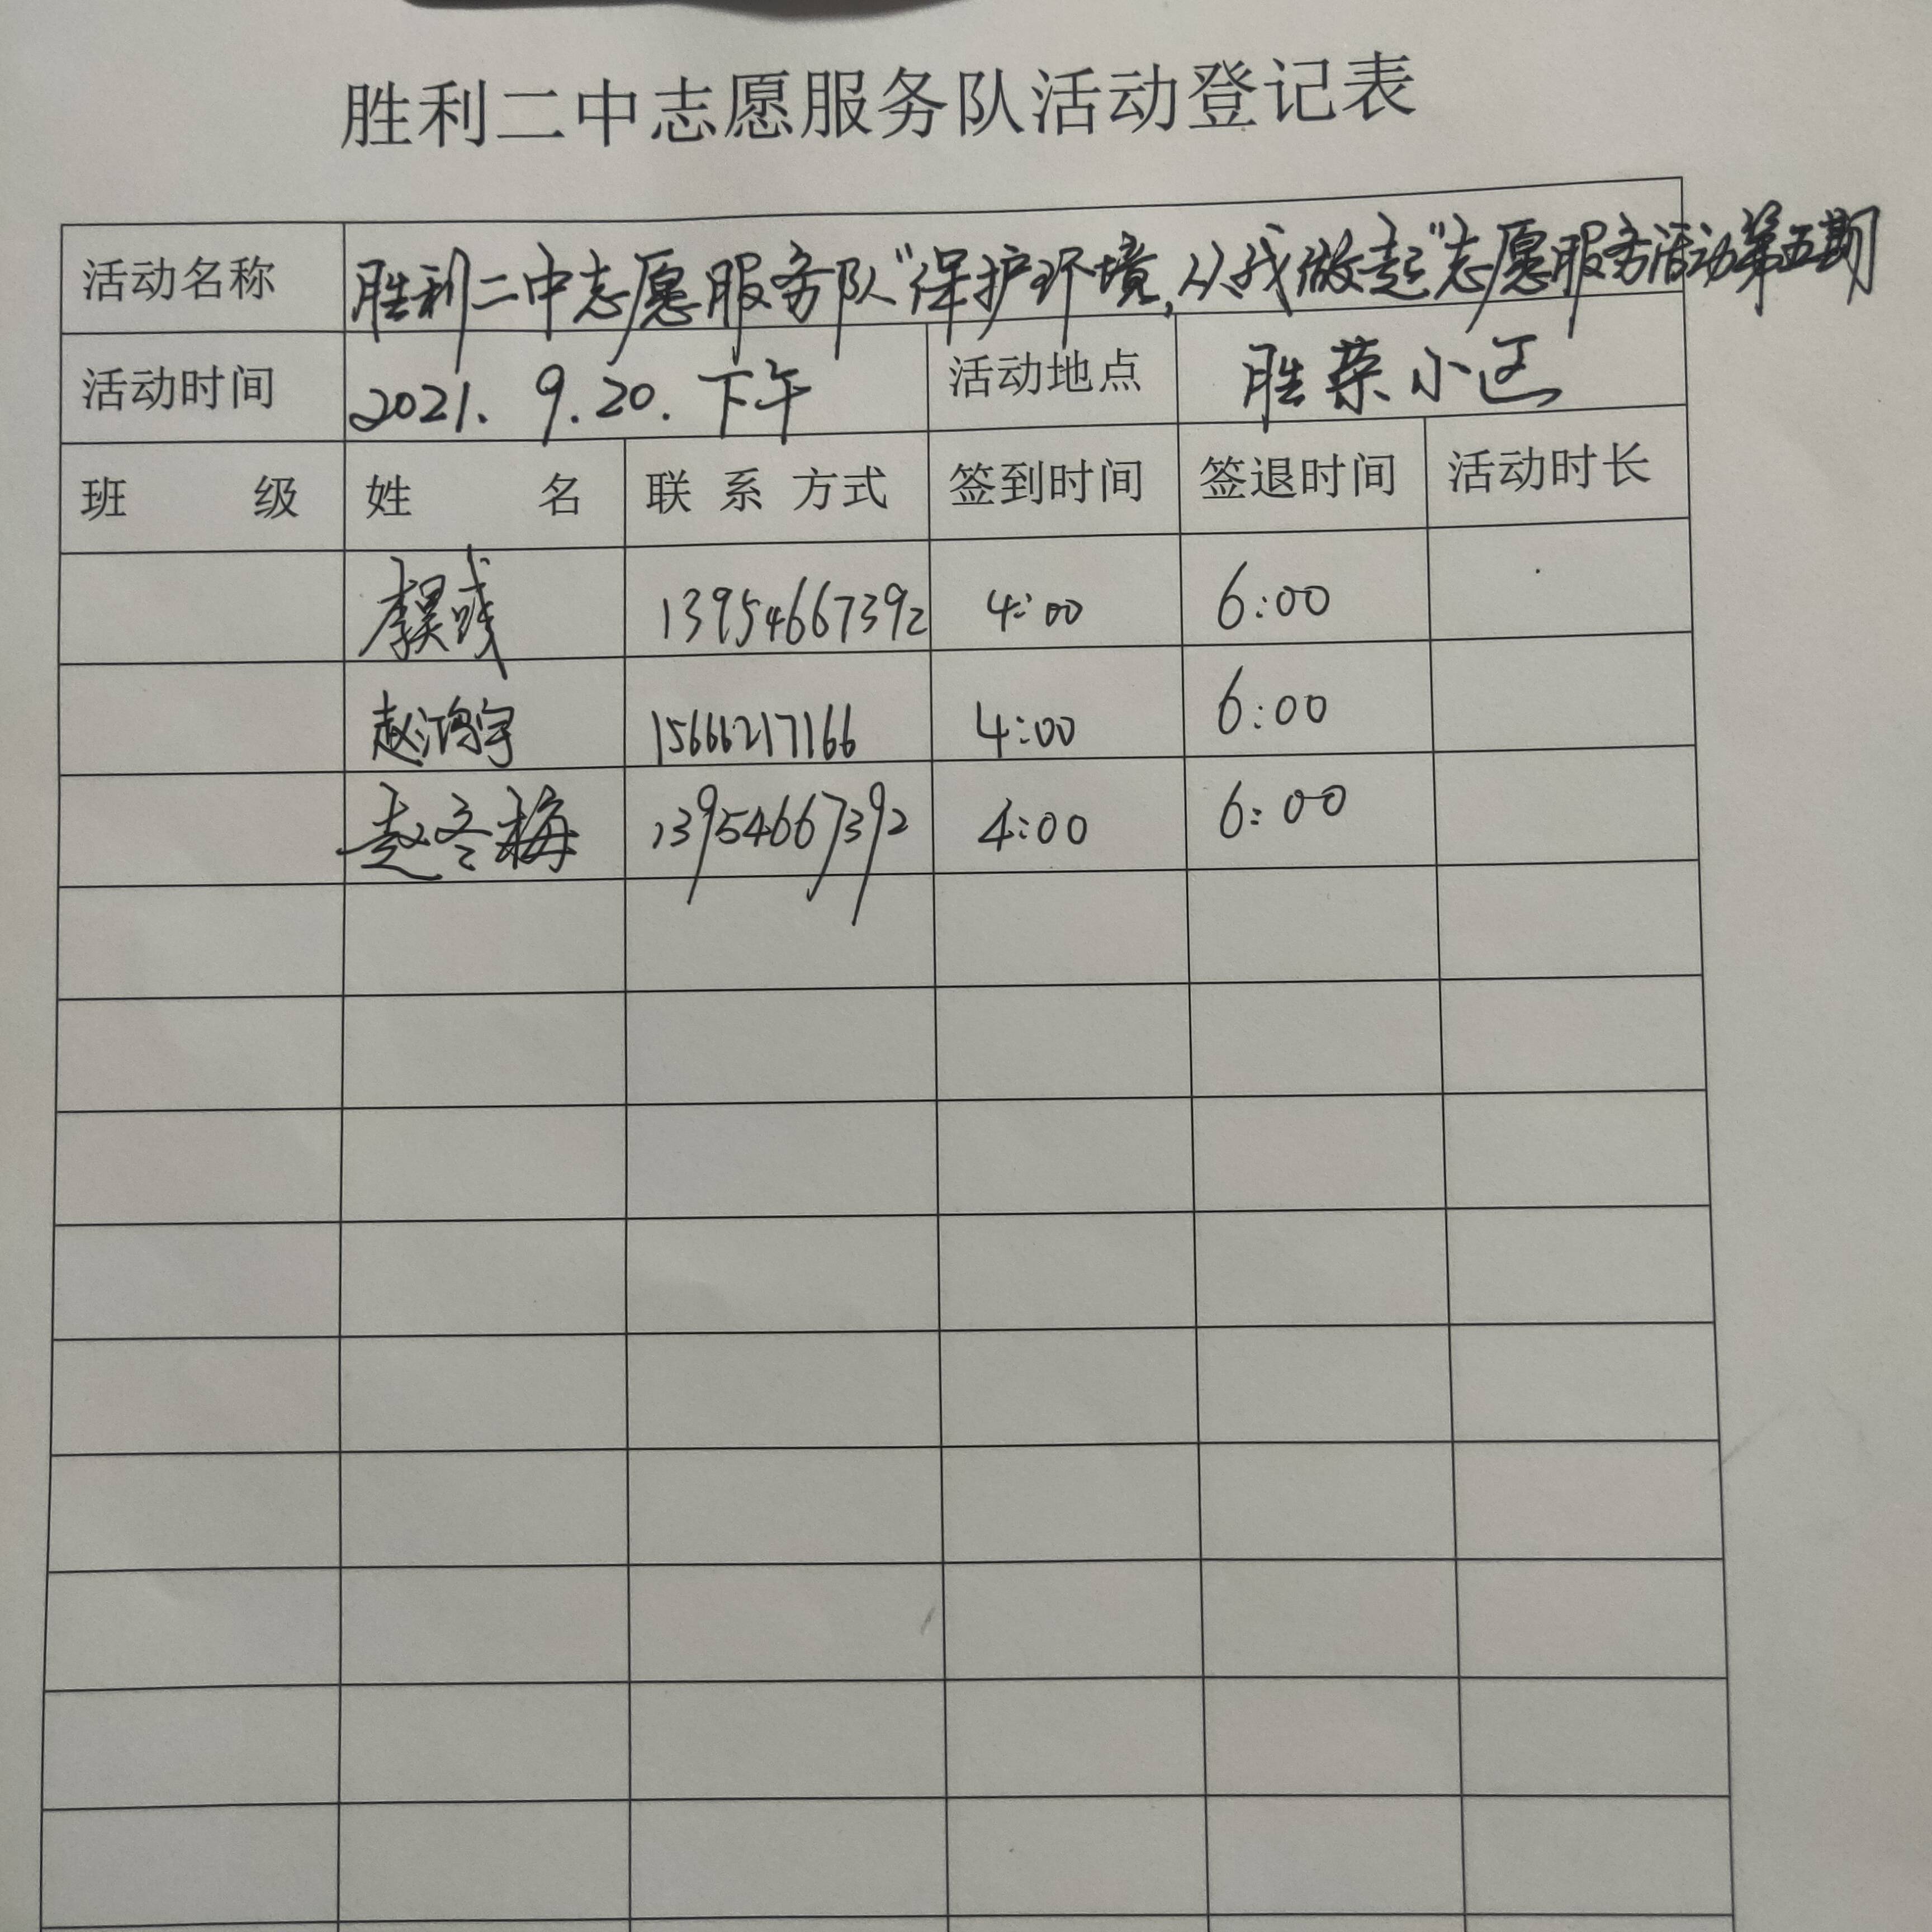 胜利二中志愿服务队活动登记表
活动名称 胜利二中志愿服务队“保护环境,从我做起”志愿服务活动第五期
活动时间 2021.9.20.下午 活动地点 胜荣小区
班 级 姓 名 联 系 方式 签到时间 签退时间 活动时长
李昊 13954667392 4:00 6:00
赵鸿宇 15666217166 4:00 6:00
赵冬梅 13954667392 4:00 6:00